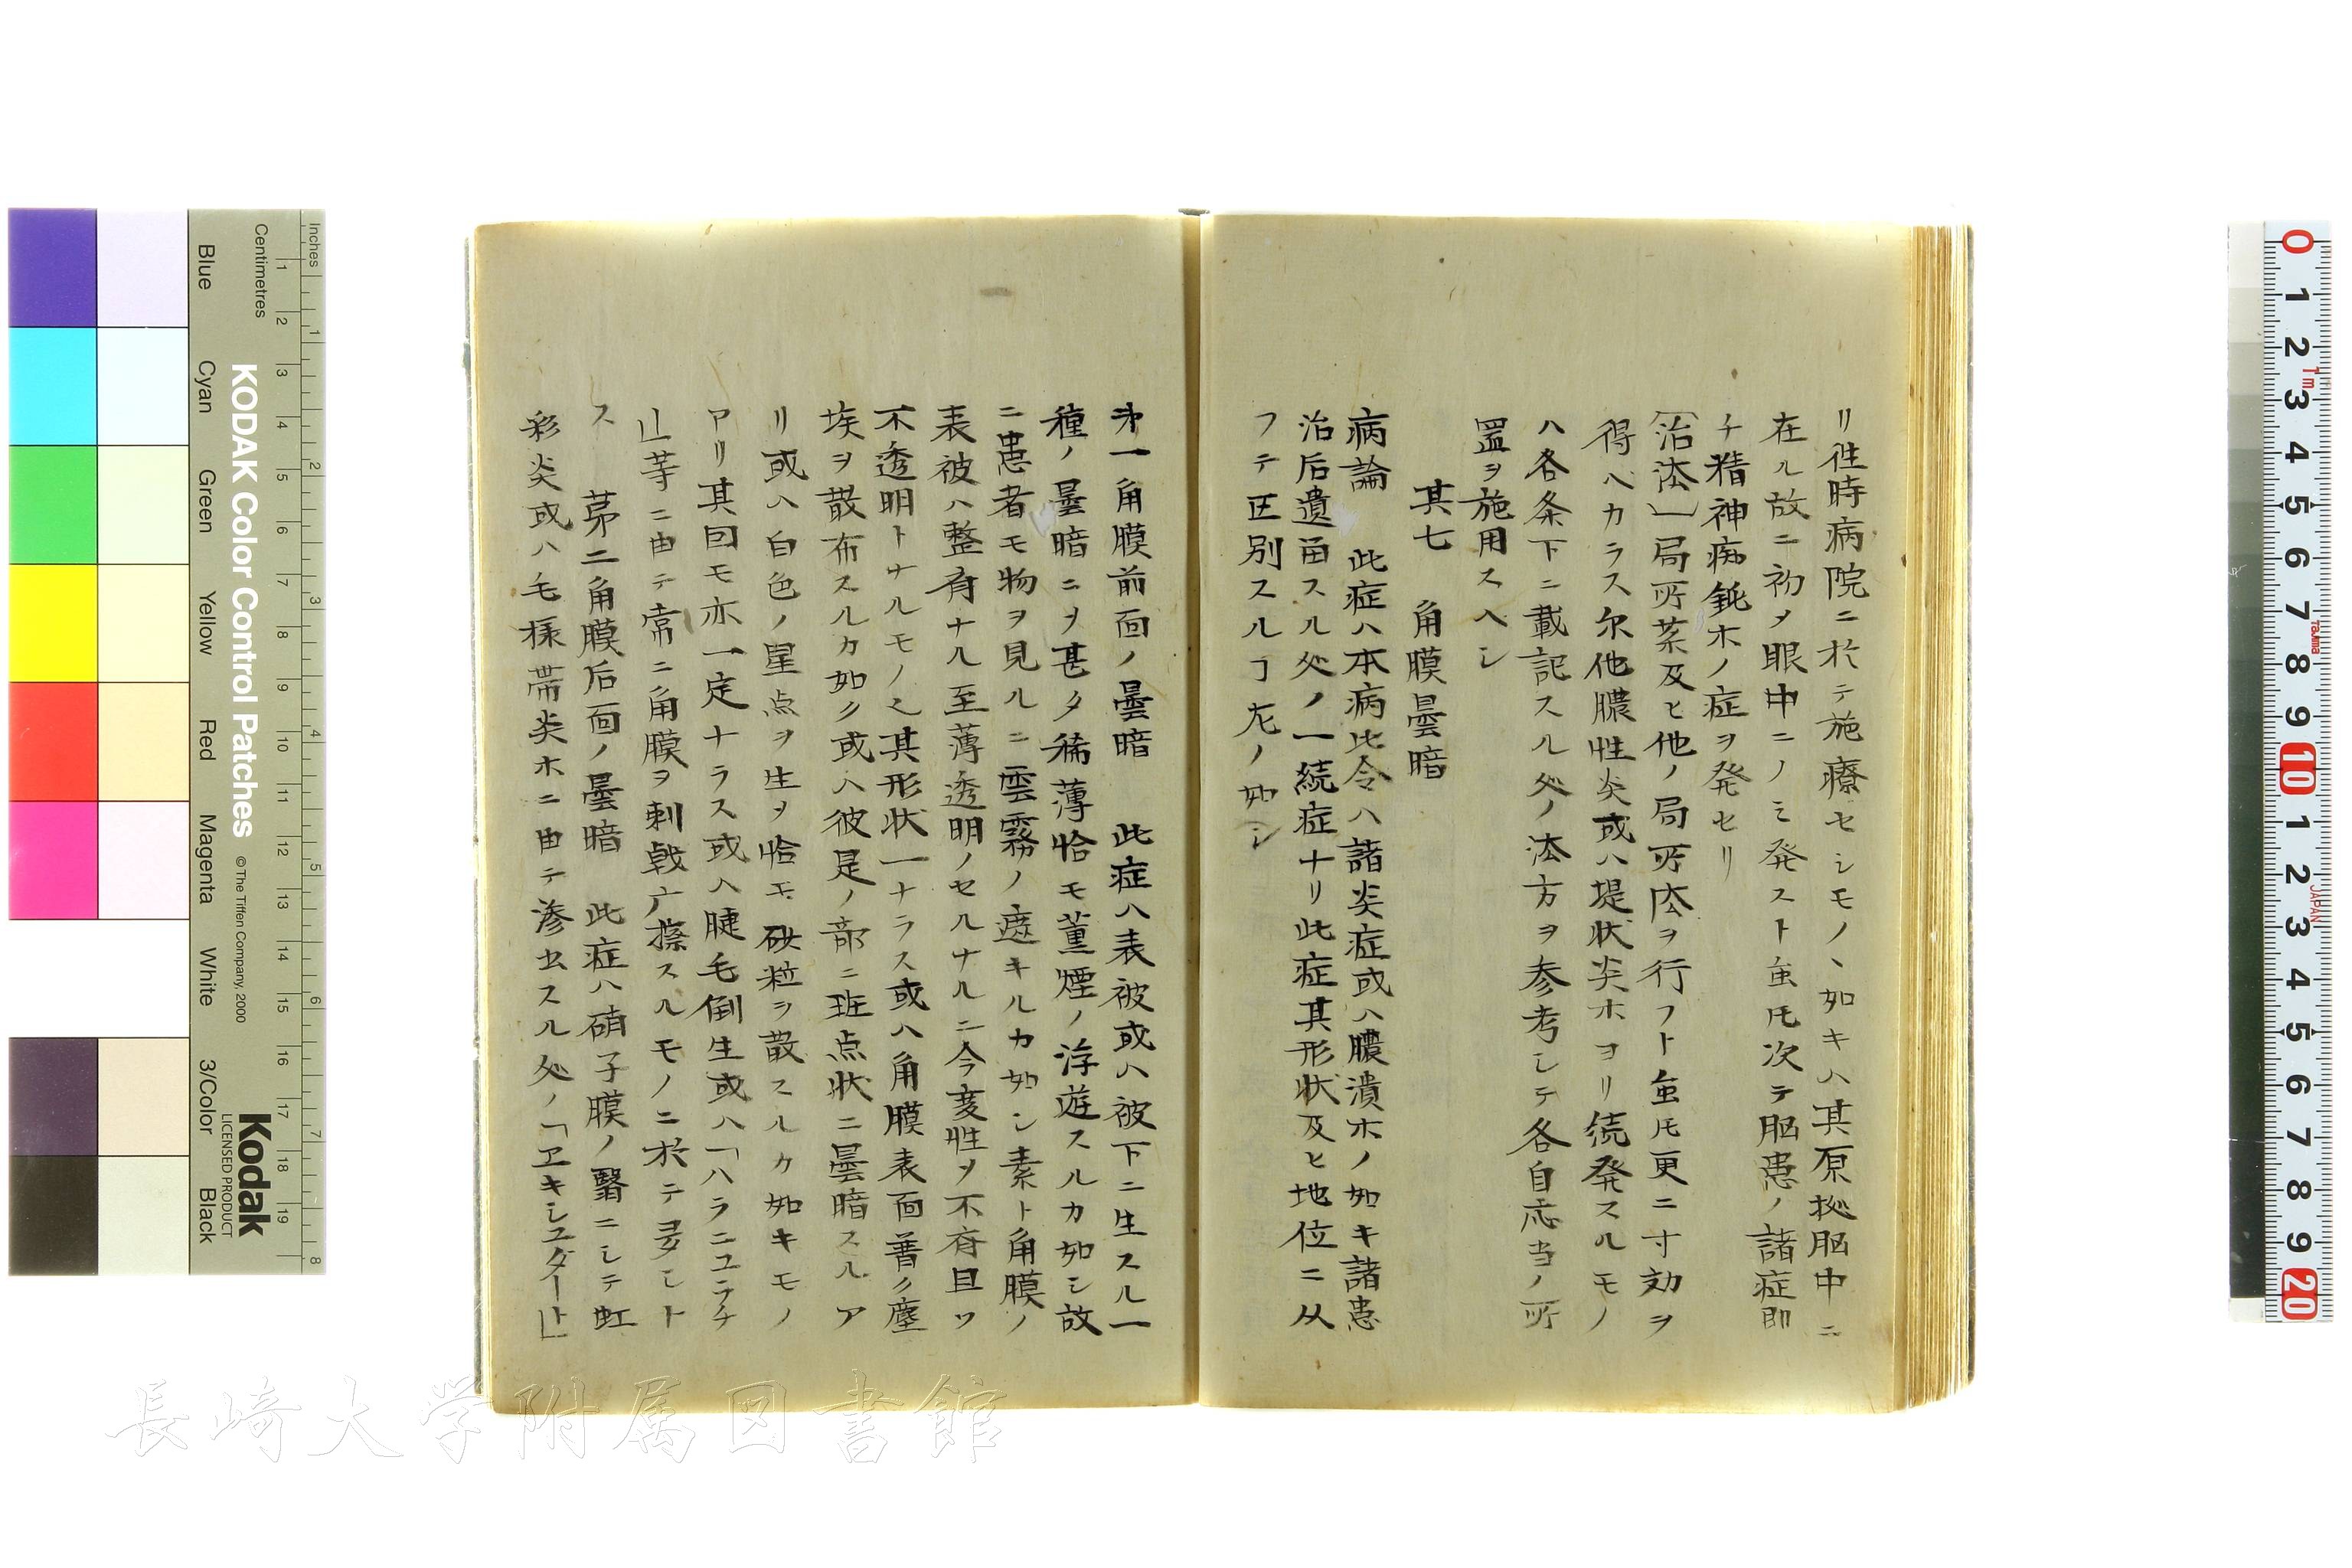 リ徃時病院ニ於テ施療セシモノヽ如キハ其原拠脳中ニ
在ル故ニ初メ眼中ニノミ発スト虽𪜈次テ脳患ノ諸症即
チ精神痴鈍ホノ症ヲ発セリ
〔治法〕局所薬及ヒ他ノ局所法ヲ行フト虽𪜈更ニ寸効ヲ
得ヘカラス尓他膿性炎或ハ堤状炎ホヨリ続発スルモノ
ハ各条下ニ載記スル処ノ法方ヲ参考シテ各自応当ノ所
置ヲ施用スヘシ
其七 角膜曇暗
病論 此症ハ本病比令ハ諸炎症或ハ膿潰ホノ如キ諸患
治后遺畄スル処ノ一続症ナリ此症其形状及ヒ地位ニ从
フテ区別スルヿ左ノ如シ
㐧一角膜前面ノ曇暗 此症ハ表被或ハ被下ニ生スル一
種ノ曇暗ニヲ甚タ稀薄恰モ薫煙ノ浮遊スルカ如シ故
ニ患者モ物ヲ見ルニ雲霧ノ遮キルカ如シ素ト角膜ノ
表被ハ整斉ナル至薄透明ノセルナルニ今変性ヲ不斉且ツ
不透明トナルモノ之其形状一ナラス或ハ角膜表面普ク塵
埃ヲ散布スルカ如ク或ハ彼是ノ部ニ班点状ニ曇暗スルア
リ或ハ白色ノ星点ヲ生ヲ恰モ砂粒ヲ散スルカ如キモノ
アリ其因モ亦一定ナラス或ハ睫毛倒生或ハ「ハラニユニチ
」等ニ由テ常ニ角膜ヲ刺戟广擦スルモノニ於テ多シト
ス 苐二角膜后面ノ曇暗 此症ハ硝子膜ノ翳ニシテ虹
彩炎或ハ毛様帯炎ホニ由テ滲出スル処ノ「ヱキシユダート」
KODAK Color Control Patches
© The Tiffen Company, 2000
Kodak
LICENSED PRODUCT
Inches
Centimetres
Blue
Cyan
Green
Yellow
Red
Magenta
White
3/Color
Black
1 2 3 4 5 6 7 8 9 10 11 12 13 14 15 16 17 18 19
1 2 3 4 5 6 7 8
0 1 2 3 4 5 6 7 8 9 10 1 2 3 4 5 6 7 8 9 20
1m
Tajima
JAPAN
長崎大学附属図書館